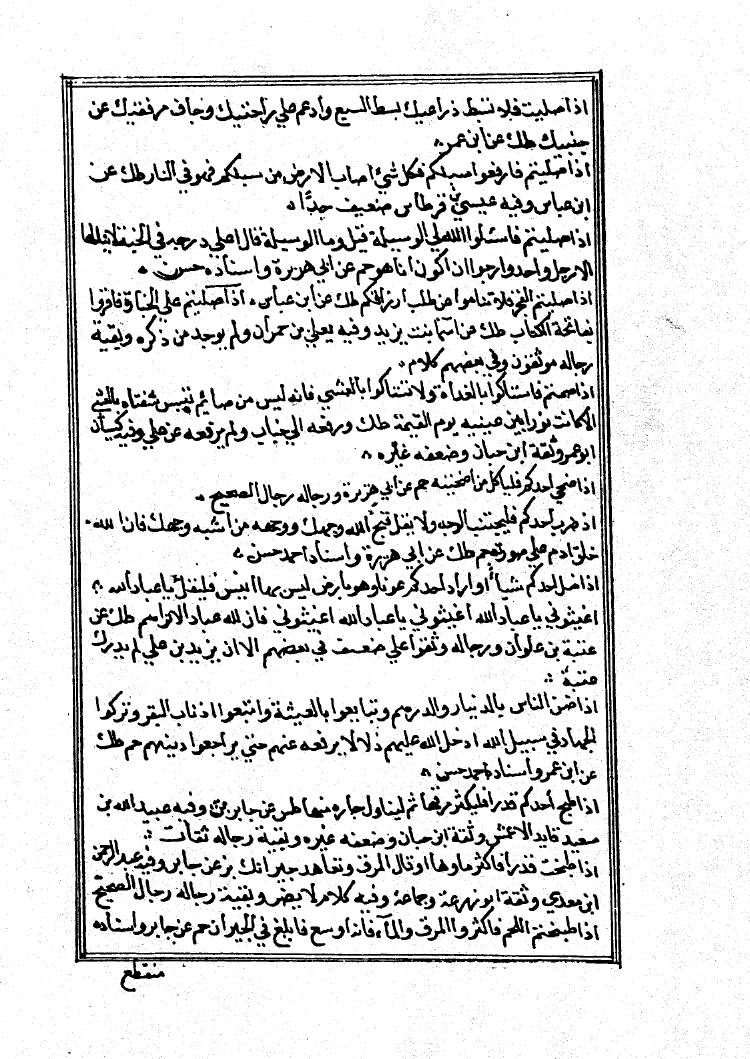 اذا صليت فلا تبسط ذراعيك بسط السبع وادعم علي راحتيك وجاف مرفقيك عن
جنبيك طك عن ابن عمر
اذا صليتم فارفعوا سبلكم فكل شئ اصاب الارض من سبلكم فهو في النار طك عن
ابن عباس وفيه عيسي بن قرطاس ضعيف جدًا
اذا صليتم فاسئلوا الله لي الوسيلة قيل وما الوسيلة قال اعلي درجة في الجنة لا ينالها
الا رجل واحد وارجوا ان اكون انا هو حم عن ابي هريرة واسناده حسن
اذا صليتم الفجر فلا تناموا عن طلب ارزاقكم طك عن ابن عباس اذا صليتم علي الجنازة فاقروا
بفاتحة الكتاب طك عن اسما بنت يزيد وفيه يعلي بن حمران ولم يوجد من ذكره وبقية
رجاله موثقون وفي بعضهم كلام
اذا صمتم فاستاكوا بالغداة ولا تستاكوا بالعشي فانه ليس من صائم تيبس شفتاه بالعشي
الا كانت نورا بين عينيه يوم القيمة طك ورفعه الي خباب ولم يرفعه عن علي وفيه كيسان
ابو عمر وثقة ابن حبان وضعفه غيره
اذا ضحي احدكم فلياكل من اضحيته حم عن ابي هريرة ورجاله رجال الصحيح
اذا ضرب احدكم فليجتنب الوجه ولا يقل قبح الله وجهك ووجه من اشبه وجهك فان الله
خلق ادم علي صورته حم طك عن ابي هريرة واسناد احمد حسن
اذا ضل احدكم شيأ او اراد احدكم عونا وهو بارض ليس بها انيس فليقل يا عباد الله
اغيثوني يا عباد الله اغيثوني يا عباد الله اغيثوني فان لله عبادا لا نراهم طك عن
عتبة بن غزوان ورجاله وثقوا علي ضعف في بعضهم الا ان يزيد بن علي لم يدرك
عتبة
اذا ضن الناس بالدينار والدرهم وتبايعوا بالعينة واتبعوا اذناب البقر وتركوا
الجهاد في سبيل الله ادخل الله عليهم ذلا لا يرفعه عنهم حتي يراجعوا دينهم حم طك
عن ابن عمر واسناد احمد حسن
اذا طبخ احدكم قدرا فليكثر مرقها ثم ليناول جاره منها طس عن جابر وفيه عبيد الله بن
سعيد قايد الاعمش وثقة ابن حبان وضعفه غيره وبقية رجاله ثقات
اذا طبخت قدرا فاكثر ماوها او قال المرق وتعاهد جيرانك بز عن جابر وفيه عبد الرحمن
ابن مغدي وثقة ابو زرعة وجماعة وفيه كلام لا يضر وبقية رجاله رجال الصحيح
اذا طبختم اللحم فاكثروا المرق والمآء فانه اوسع فابلغ في الجيران حم عن جابر واسناده
منقطع